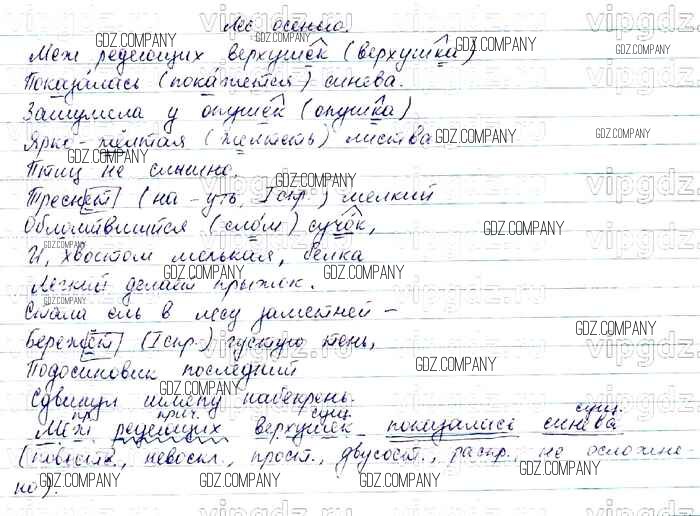 Лес осенью.
Меж редеющих верхушек (верхушки)
Показалась (покажется) синева.
Зашумела у опушек (опушка)
Ярко-жёлтая (желтеть) листва.
Птиц не слышно.
Треснет (на -уть, I спр.) мелкий
Обломившийся (слом) сучок,
И, хвостом мелькая, белка
Лёгкий делает прыжок.
Стала ель в лесу заметней –
Бережёт (I спр.) густую тень,
Подосиновик последний
Сдвинул шляпу набекрень.
пр. прич. сущ. сущ.
Меж редеющих верхушек показалась синева
(повеств., невоскл., прост., двусост., распр., не осложне-
но).
GDZ.COMPANY
vipgdz.ru